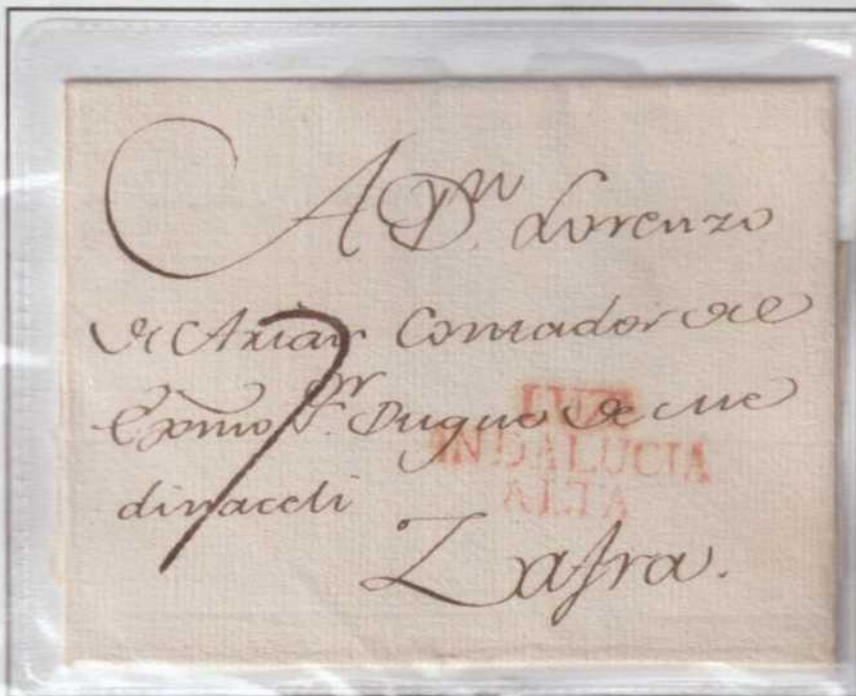 A Dn. Lorenzo
de Arias Contador del
Exmo Sr. Duque de Me
dinaceli
Zafra.
7
ANDALUCIA
ALTA